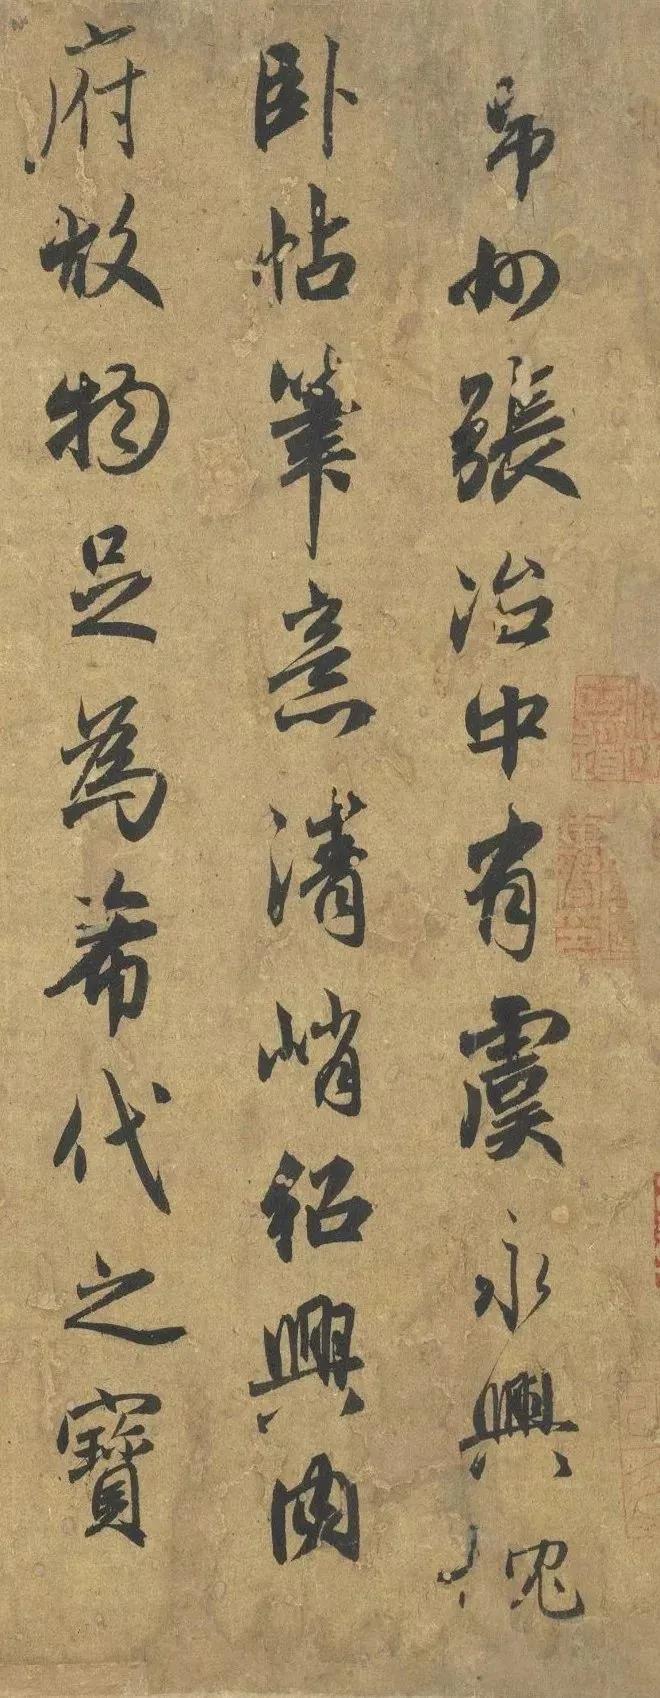 常州張治中有虞永興枕
卧帖筆意清峭紹興內
府故物足為希代之寶